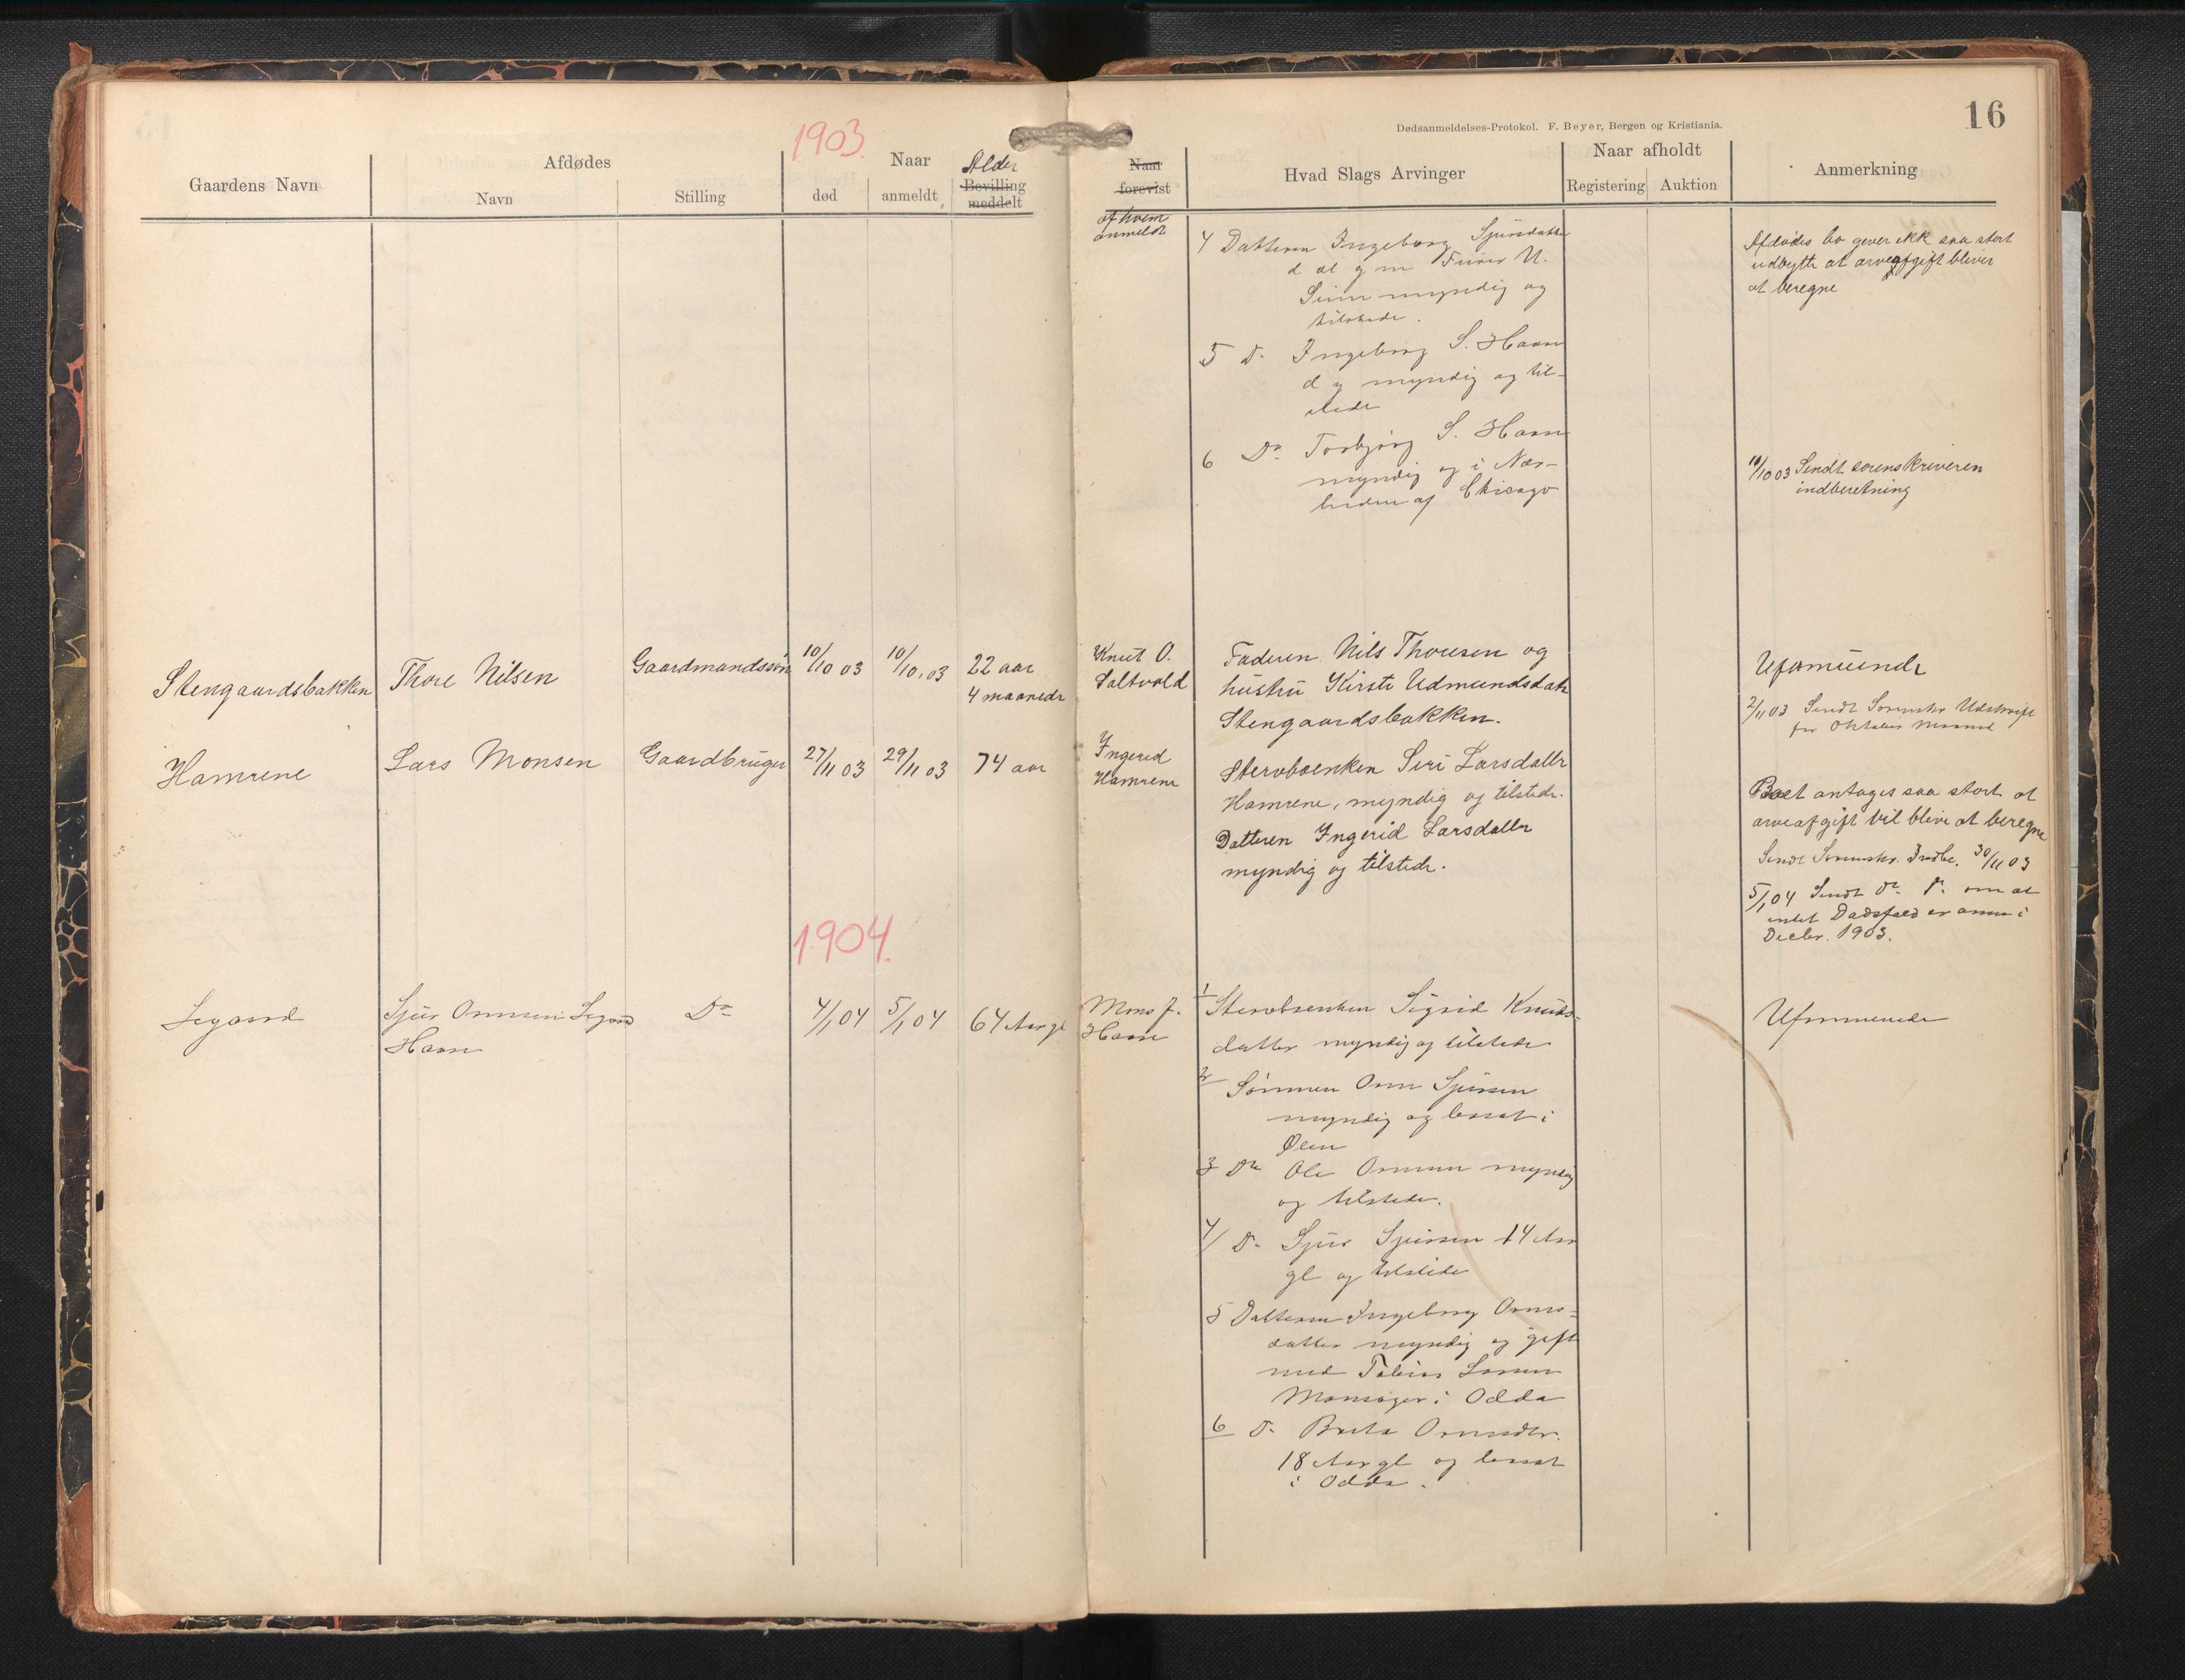 16
Dødsanmeldelses-Protokol. F. Beyer, Bergen og Kristiania.
1903.
Gaardens Navn
Afdødes
Navn
Stilling
Naar
død
anmeldt
Alder
Bevilling
meddelt
Naar
forevist
af hvem
anmeldt
Hvad Slags Arvinger
Naar afholdt
Registering
Auktion
Anmerkning
4 Datteren Ingeborg Sjursdatter
d æl g m U.
myndig og
tilstede.
5 Do Ingeborg S. Haan
d y myndig og til-
stede
6 Do Torbjørg S. Haan
myndig og i Nær-
heden af Chicago
Afdødes bo giver ikk saa stort
udbytte at arveafgift bliver
at beregne
10/10 03 Sendt sorenskriveren
indberetning
Stengaardsbakken
Thore Nilsen
Gaardmandssøn
10/10 03
10/10.03
22 aar
4 maaneder
Knut O.
Saltvold
Faderen Nils Thoresen og
hustru Kirsti Udmundsdatr
Stengaardsbakken.
Uformuende
2/11 03 Sendt Sorenskr Udskrift
for Oktober Maaned
Hamrene
Lars Monsen
Gaardbruger
27/11 03
29/11 03
74 aar
Ingerid
Hamrene
Stervboenken Siri Larsdattr
Hamrene, myndig og tilstede.
Datteren Ingerid Larsdattr
myndig og tilstede.
Boet antages saa stort at
arveafgift vil blive at beregne
Sendt Sorenskr. Indbe. 30/11 03
5/1 04 Sendt do do om at
intet Dødsfald er anm i
Decbr. 1903.
1904.
Legaard
Sjur Ormsen Legaard
Haan
Do
4/1 04
5/1 04
64 Aar gl
Mons J.
Haan
1 Stervboenken Sigrid Knuds-
datter myndig og tilstede
2 Sønnen Orm Sjursen
myndig og bosat i
Ølen
3 Do Ole Ormsen myndig
og tilstede.
4/ Do Sjur Sjursen 14 Aar
gl og tilstede
5 Datteren Ingeborg Orms-
datter myndig og gift
med Tobias Larsen
i Odda
6 Do Brita Ormsdtr.
18 Aar gl og bosat
i Odda.
Uformuende